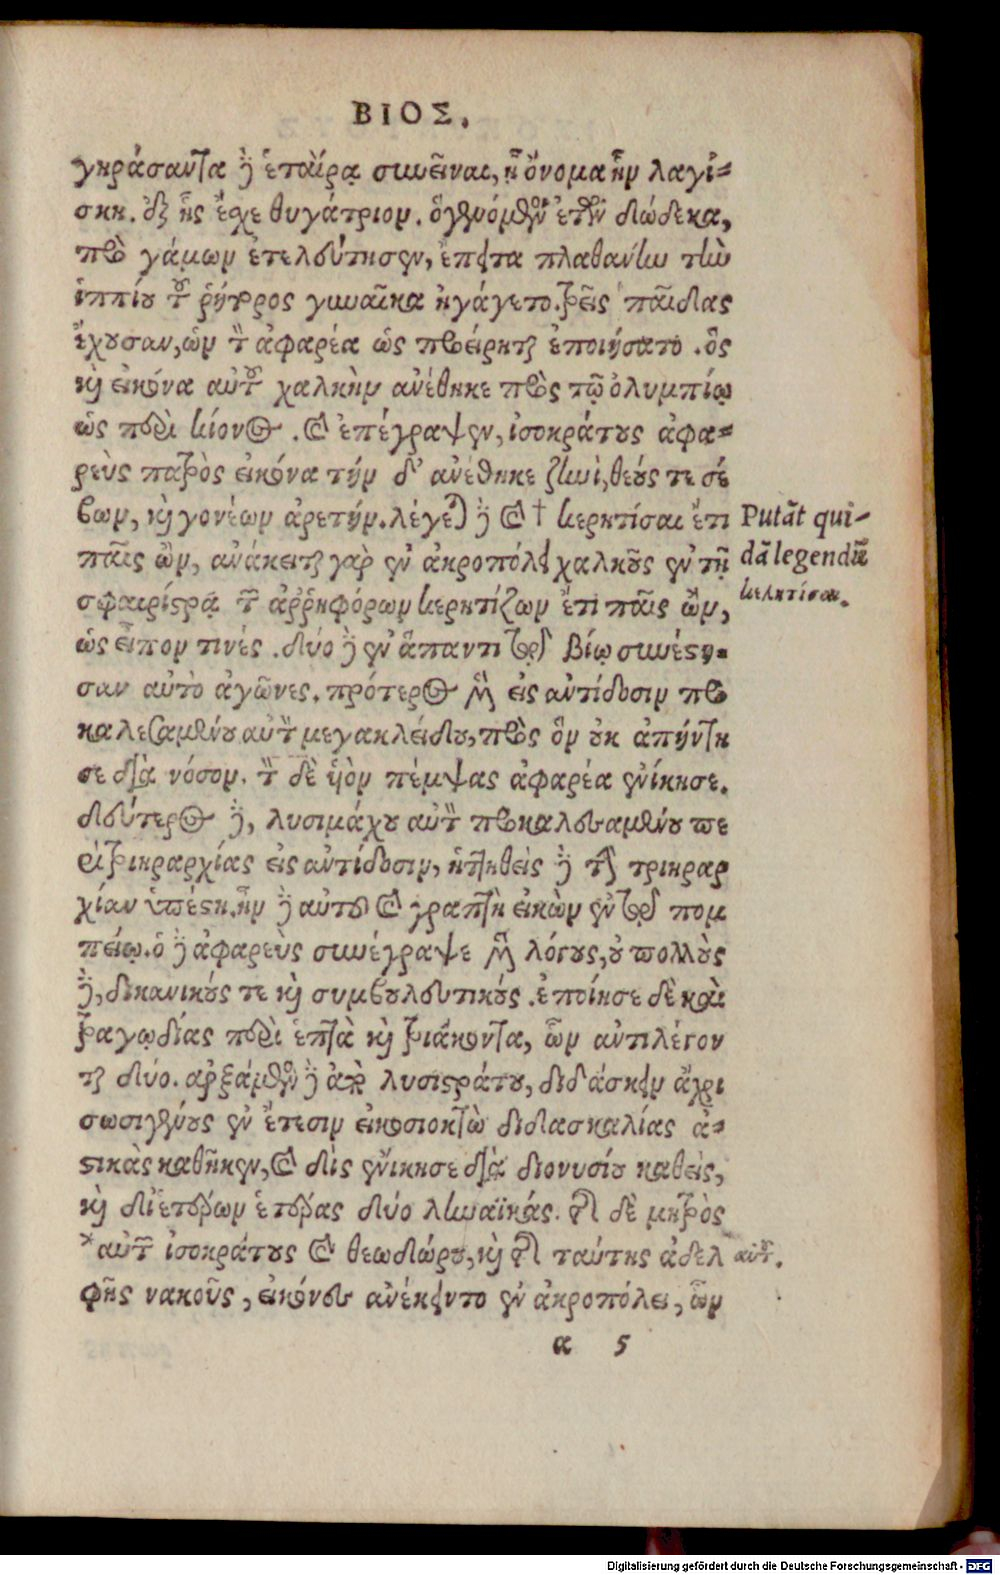 ΒΙΟΣ.
γηράσαντα δὲ ἑταίρᾳ συνεῖναι, ᾗ ὄνομα ἦν λαγί-
σκη. ἐξ ἧς ἔσχε θυγάτριον. ὃ γενόμενον ἐτῶν δώδεκα,
πρὸ γάμων ἐτελεύτησεν, ἔπειτα πλαθάνην τὴν
ἱππίου τοῦ ῥήτορος γυναῖκα ἠγάγετο. τρεῖς παῖδας
ἔχουσαν, ὧν τὸν ἀφαρέα ὡς προείρηται ἐποιήσατο. ὃς
καὶ εἰκόνα αὐτοῦ χαλκὴν ἀνέθηκε πρὸς τῷ ὀλυμπίῳ
ὡς περὶ κίονος. καὶ ἐπέγραψεν, ἰσοκράτους ἀφα-
ρεὺς πατρὸς εἰκόνα τήν δ' ἀνέθηκε ζηνὶ, θεούς τε σέ
βων, καὶ γονέων ἀρετήν. λέγεται δὲ καὶ † κερητίσαι ἔτι
παῖς ὢν, ἀνάκειται γὰρ ἐν ἀκροπόλει χαλκοῦς ἐν τῇ
σφαιρίστρᾳ τῶν ἀῤῥηφόρων κερητίζων ἔτι παῖς ὢν,
ὡς εἶπον τινές. δύο δὲ ἐν ἅπαντι τῷ βίῳ συνέστη-
σαν αὐτῷ ἀγῶνες. πρότερος μὲν εἰς ἀντίδοσιν προ
καλεσαμένου αὐτὸν μεγακλείδου, πρὸς ὃν οὐκ ἀπήντη
σε διὰ νόσον. τὸν δὲ υἱὸν πέμψας ἀφαρέα ἐνίκησε.
δεύτερος δὲ, λυσιμάχου αὐτὸν προκαλεσαμένου πε
ρὶ τριηραρχίας εἰς ἀντίδοσιν, ἡττηθεὶς δὲ τὴν τριηραρ
χίαν ὑπέστη. ἦν δὲ αὐτοῦ καὶ γραπτὴ εἰκὼν ἐν τῷ πομ
πείῳ. ὁ δὲ ἀφαρεὺς συνέγραψε μὲν λόγους, οὐ πολλοὺς
δὲ, δικανικούς τε καὶ συμβουλευτικούς. ἐποίησε δὲ καὶ
τραγῳδίας περὶ ἑπτὰ καὶ τριάκοντα, ὧν ἀντιλέγον
ται δύο. ἀρξάμενος δὲ ἀπὸ λυσιστράτου, διδάσκειν ἄχρι
σωσιγένους ἐν ἔτεσιν εἰκοσιοκτὼ διδασκαλίας ἀ-
στικὰς καθῆκεν, καὶ δὶς ἐνίκησε διὰ διονυσίου καθεὶς,
καὶ δι' ἑτέρων ἑτέρας δύο ληναϊκάς. τῆς δὲ μητρὸς
* αὐτῶν ἰσοκράτους καὶ θεωδώρου, καὶ τῆς ταύτης ἀδελ
φῆς νακοῦς, εἰκόνες ἀνέκειντο ἐν ἀκροπόλει, ὧν
α 5
Putāt qui-
dā legendū
κελητίσαι.
αὐτοῦ.
Digitalisierung gefördert durch die Deutsche Forschungsgemeinschaft - DFG